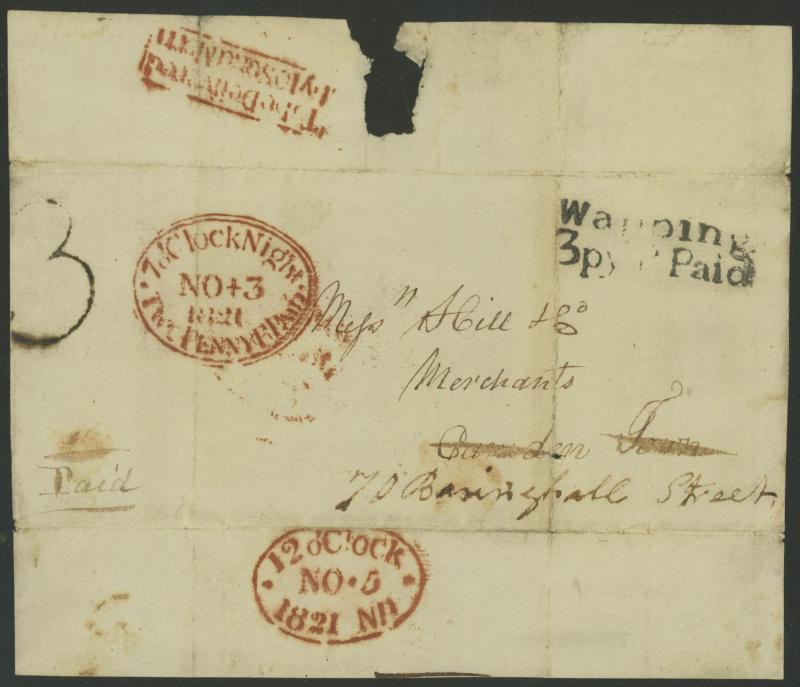 To be Delivered
by 10 o'Clock
3
7 o'Clock Night
NO + 3
1821
TWY PENNY P. PAID
Wapping
3py P Paid
Messrs Hill & Co
Merchants
Camden Town
Paid
70 Basinghall Street
12 o'Clock
NO · 5
1821 NN